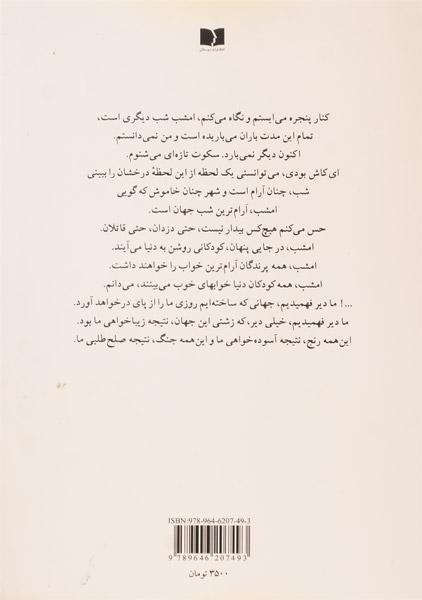 کنار پنجره می‌ایستم و نگاه می‌کنم، امشب شب دیگری است،
تمام این مدت باران می‌باریده است و من نمی‌دانستم.
اکنون دیگر نمی‌بارد. سکوت تازه‌ای می‌شنوم.
ای کاش بودی، می‌توانستی یک لحظه از این لحظهٔ درخشان را ببینی
شب، چنان آرام است و شهر چنان خاموش که گویی
امشب، آرام‌ترین شب جهان است.
حس می‌کنم هیچ‌کس بیدار نیست، حتی دزدان، حتی قاتلان.
امشب، در جایی پنهان، کودکانی روشن به دنیا می‌آیند.
امشب، همه پرندگان آرام‌ترین خواب را خواهند داشت.
امشب، همه کودکان دنیا خوابهای خوب می‌بینند، می‌دانم.
...! ما دیر فهمیدیم، جهانی که ساخته‌ایم روزی ما را از پای درخواهد آورد.
ما دیر فهمیدیم، خیلی دیر، که زشتی این جهان، نتیجه زیباخواهی ما بود.
این‌همه رنج، نتیجه آسوده‌خواهی ما و این‌همه جنگ، نتیجه صلح‌طلبی ما.
ISBN:978-964-6207-49-3
9 789646 207493
۳۵۰۰ تومان